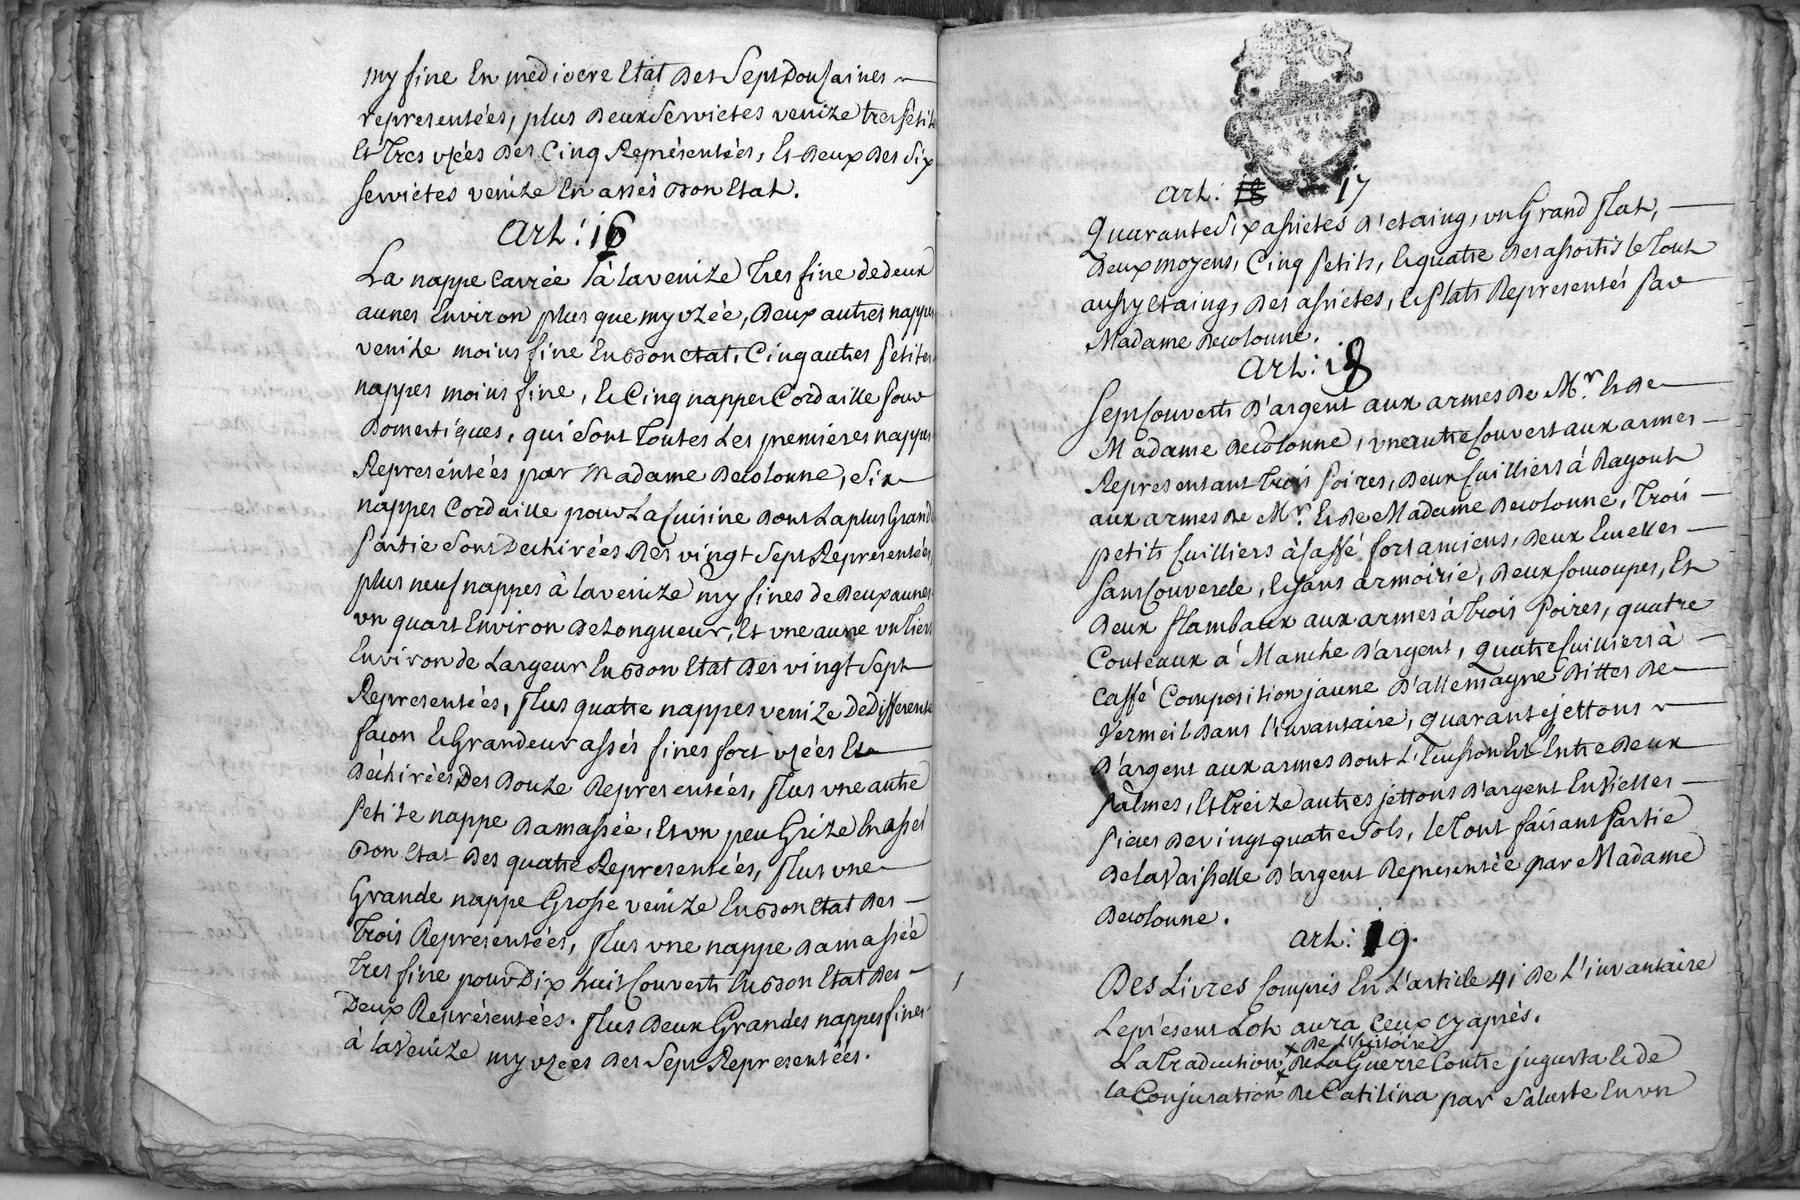 my fine En mediocre Etat des Sept Dousaines
representées, plus deux Serviettes venize tres petite
Et Tres uzées des Cinq Représentées, Et deux des Six
Serviétes venize En assés bon Etat.
Art: 16
La nappe Carrée à la venize Tres fine de deux
aunes Environ plus que my uzée, deux autres nappes
venize moins fine En bon etat, Cinq autres petites
nappes moins fine, Et Cinq nappes Cordaille pour
domestiques, qui sont Toutes Les premieres nappes
Representées par Madame Decolonne, Six
nappes Cordaille pour La Cuisine dont La plus Grande
partie sont Dechirées des vingt Sept Representées,
plus neuf nappes à la venize my fines de deux aunes
un quart Environ de Longueur, Et une aune un Tiers
Environ de Largeur En bon Etat des vingt Sept
Representées, plus quatre nappes venize de differente
façon Et Grandeur assés fines fort uzées Et
déchirées des douze Representées, plus une autre
petite nappe damassée, Et un peu Grize En assés
bon Etat des quatre Representées, plus une
Grande nappe Grosse venize En bon Etat des
Trois Représentées, plus une nappe damassée
Tres fine pour Dix huit Couverts En bon Etat des
deux Représentées. plus deux Grandes nappes fines
à la Venize my uzées des Sept Representées.
Art: 18 17
Quarante Six assietes d'etaing, un Grand plat,
deux moyens, Cinq petits, Et quatre desassortis le Tout
aussy etaing, des assietes, Et plats Representés par
Madame Decolonne.
Art: 18
Sept Couverts d'argent aux armes de Mr. Et de
Madame Decolonne, une autre Couvert aux armes
Representant Trois poires, deux Cuilliers à Ragout
aux armes de Mr. Et de Madame Decolonne, Trois
petits Cuilliers à Caffé fort anciens, deux Ecuelles
sans Couvercle, Et sans armoirie, deux soucoupes, Et
deux flambaux aux armes à Trois poires, quatre
Couteaux à Manche d'argent, quatre Cuilliers à
Caffé Composition jaune d'allemagne dittes de
Vermeil dans l'invantaire, quarante jettons
d'argent aux armes dont L'Ecusson Est Entre deux
palmes, Et Treize autres jettons d'argent En Vielles
pieces de vingt quatre sols, le Tout faisant partie
de la Vaisselle d'argent Representée par Madame
Decolonne.
Art: 19.
Des Livres Compris En L'article 41 de L'invantaire
Le present Lot aura Ceux cy après.
de L'histoire
La Traduction de La Guerre Contre jugurta Et de
la Conjuration de Catilina par Saluste En un